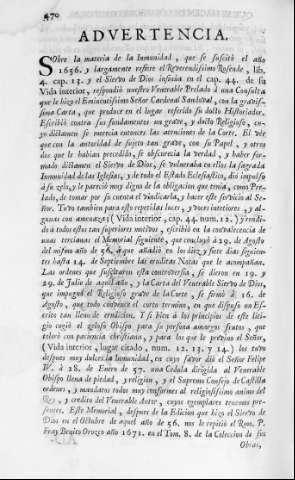 470
ADVERTENCIA.
SObre la materia de la Inmunidad, que se suscitó el año
1656. y largamente refiere el Reverendissimo Rosende, lib.
4. cap. 13. y el Siervo de Dios insinúa en el cap. 44. de su
Vida interior, respondió nuestro Venerable Prelado à una Consulta
que le hizo el Eminentissimo Señor Cardenal Sandoval, con la gravissi-
ma Carta, que produce en el lugar referido su docto Historiador.
Escribió contra sus fundamentos un grave, y docto Religioso, cu-
yo dictamen se merecia entonces las atenciones de la Corte. El vèr
que con la autoridad de sugeto tan grave, con su Papel, y otros
dos que le habian precedido, se obscurecia la verdad, y haber for-
mado dictamen el Siervo de Dios, se vulneraba en ellos la sagrada
Inmunidad de las Iglesias, y de todo el Estado Eclesiastico, dió impulso
à su zelo, y le pareció muy digno de la obligacion que tenia, como Pre-
lado, de tomar por su cuenta el vindicarla, y hacer este servicio al Se-
ñor. Tuvo tambien para esto repetidas luces, y voces interiores, y al-
gunas con amenazas (Vida interior, cap. 44. num. 12.) y rindien-
do à todos estos tan superiores motivos, escribió en la convalecencia de
unas tercianas el Memorial siguiente, que concluyó à 29. de Agosto
del mismo año de 56, à que añadió en los diez y siete dias siguien-
tes hasta 14. de Septiembre las eruditas Notas que le acompañan.
Las ordenes que suscitaron esta controversia, se dieron en 19. y
29. de Julio de aquel año, y la Carta del Venerable Siervo de Dios,
que impugnó el Religioso grave de la Corte, se firmó à 16. de
Agosto, que todo convence el corto termino, en que dispuso un Es-
crito tan lleno de erudicion. Y si bien à los principios de este liti-
gio cogió el zeloso Obispo para su persona amargos frutos, que
toleró con paciencia christiana, y para los que le previno el Señor,
(Vida interior, lugar citado, num. 12. 13. y 14.) los tuvo
despues muy dulces la Inmunidad, en cuyo favor dió el Señor Felipe
IV. à 28. de Enero de 57. una Cedula dirigida al Venerable
Obispo llena de piedad, y religion, y el Supremo Consejo de Castilla
ordenes, y mandatos todos muy conformes al religiosissimo animo del
Rey, y credito del Venerable Autor, cuyos egemplares tenemos pre-
sentes. Este Memorial, despues de la Edicion que hizo el Siervo de
Dios en el Octubre de aquel año de 56. me repitió el Rmo. P.
Fray Benito Orozco año 1671. en el Tom. 8. de la Coleccion de sus
Obras,